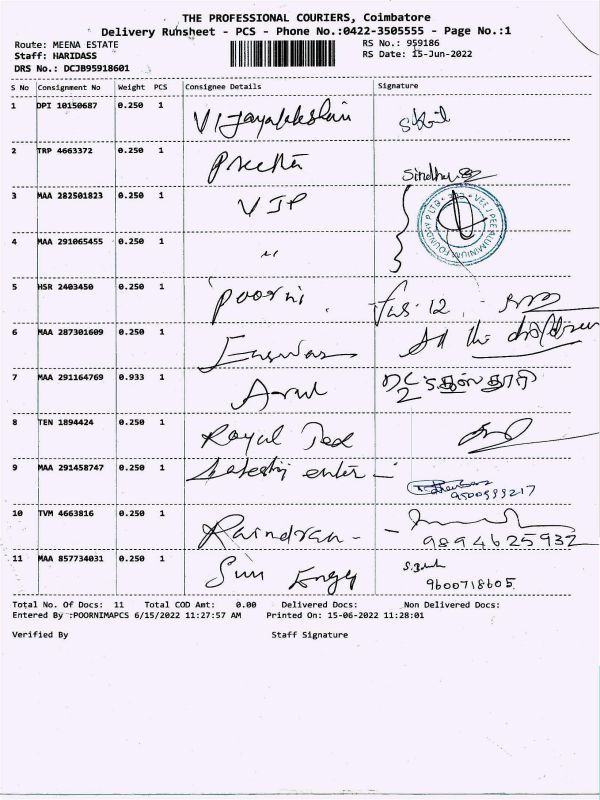 THE PROFESSIONAL COURIERS, Coimbatore
Delivery Runsheet - PCS - Phone No.:0422-3505555 - Page No.:1
Route: MEENA ESTATE
RS No.: 959186
Staff: HARIDASS
RS Date: 15-Jun-2022
DRS No.: DCJB95918601
S No Consignment No Weight PCS Consignee Details Signature
1 DPI 10150687 0.250 1 Vijayalakshmi
2 TRP 4663372 0.250 1 Preetha Sindhu
3 MAA 282501823 0.250 1 VJP
4 MAA 291065455 0.250 1 "
5 HSR 2403450 0.250 1 Poorni.
6 MAA 287301609 0.250 1 Easwar
7 MAA 291164769 0.933 1 Arul
8 TEN 1894424 0.250 1 Royal Tex
9 MAA 291458747 0.250 1 enter -
9500599217
10 TVM 4663816 0.250 1 Raindran -
9894625932
11 MAA 857734031 0.250 1 Sun Engg
9600718605
Total No. Of Docs: 11 Total COD Amt: 0.00 Delivered Docs: Non Delivered Docs:
Entered By :POORNIMAPCS 6/15/2022 11:27:57 AM Printed On: 15-06-2022 11:28:01
Verified By Staff Signature